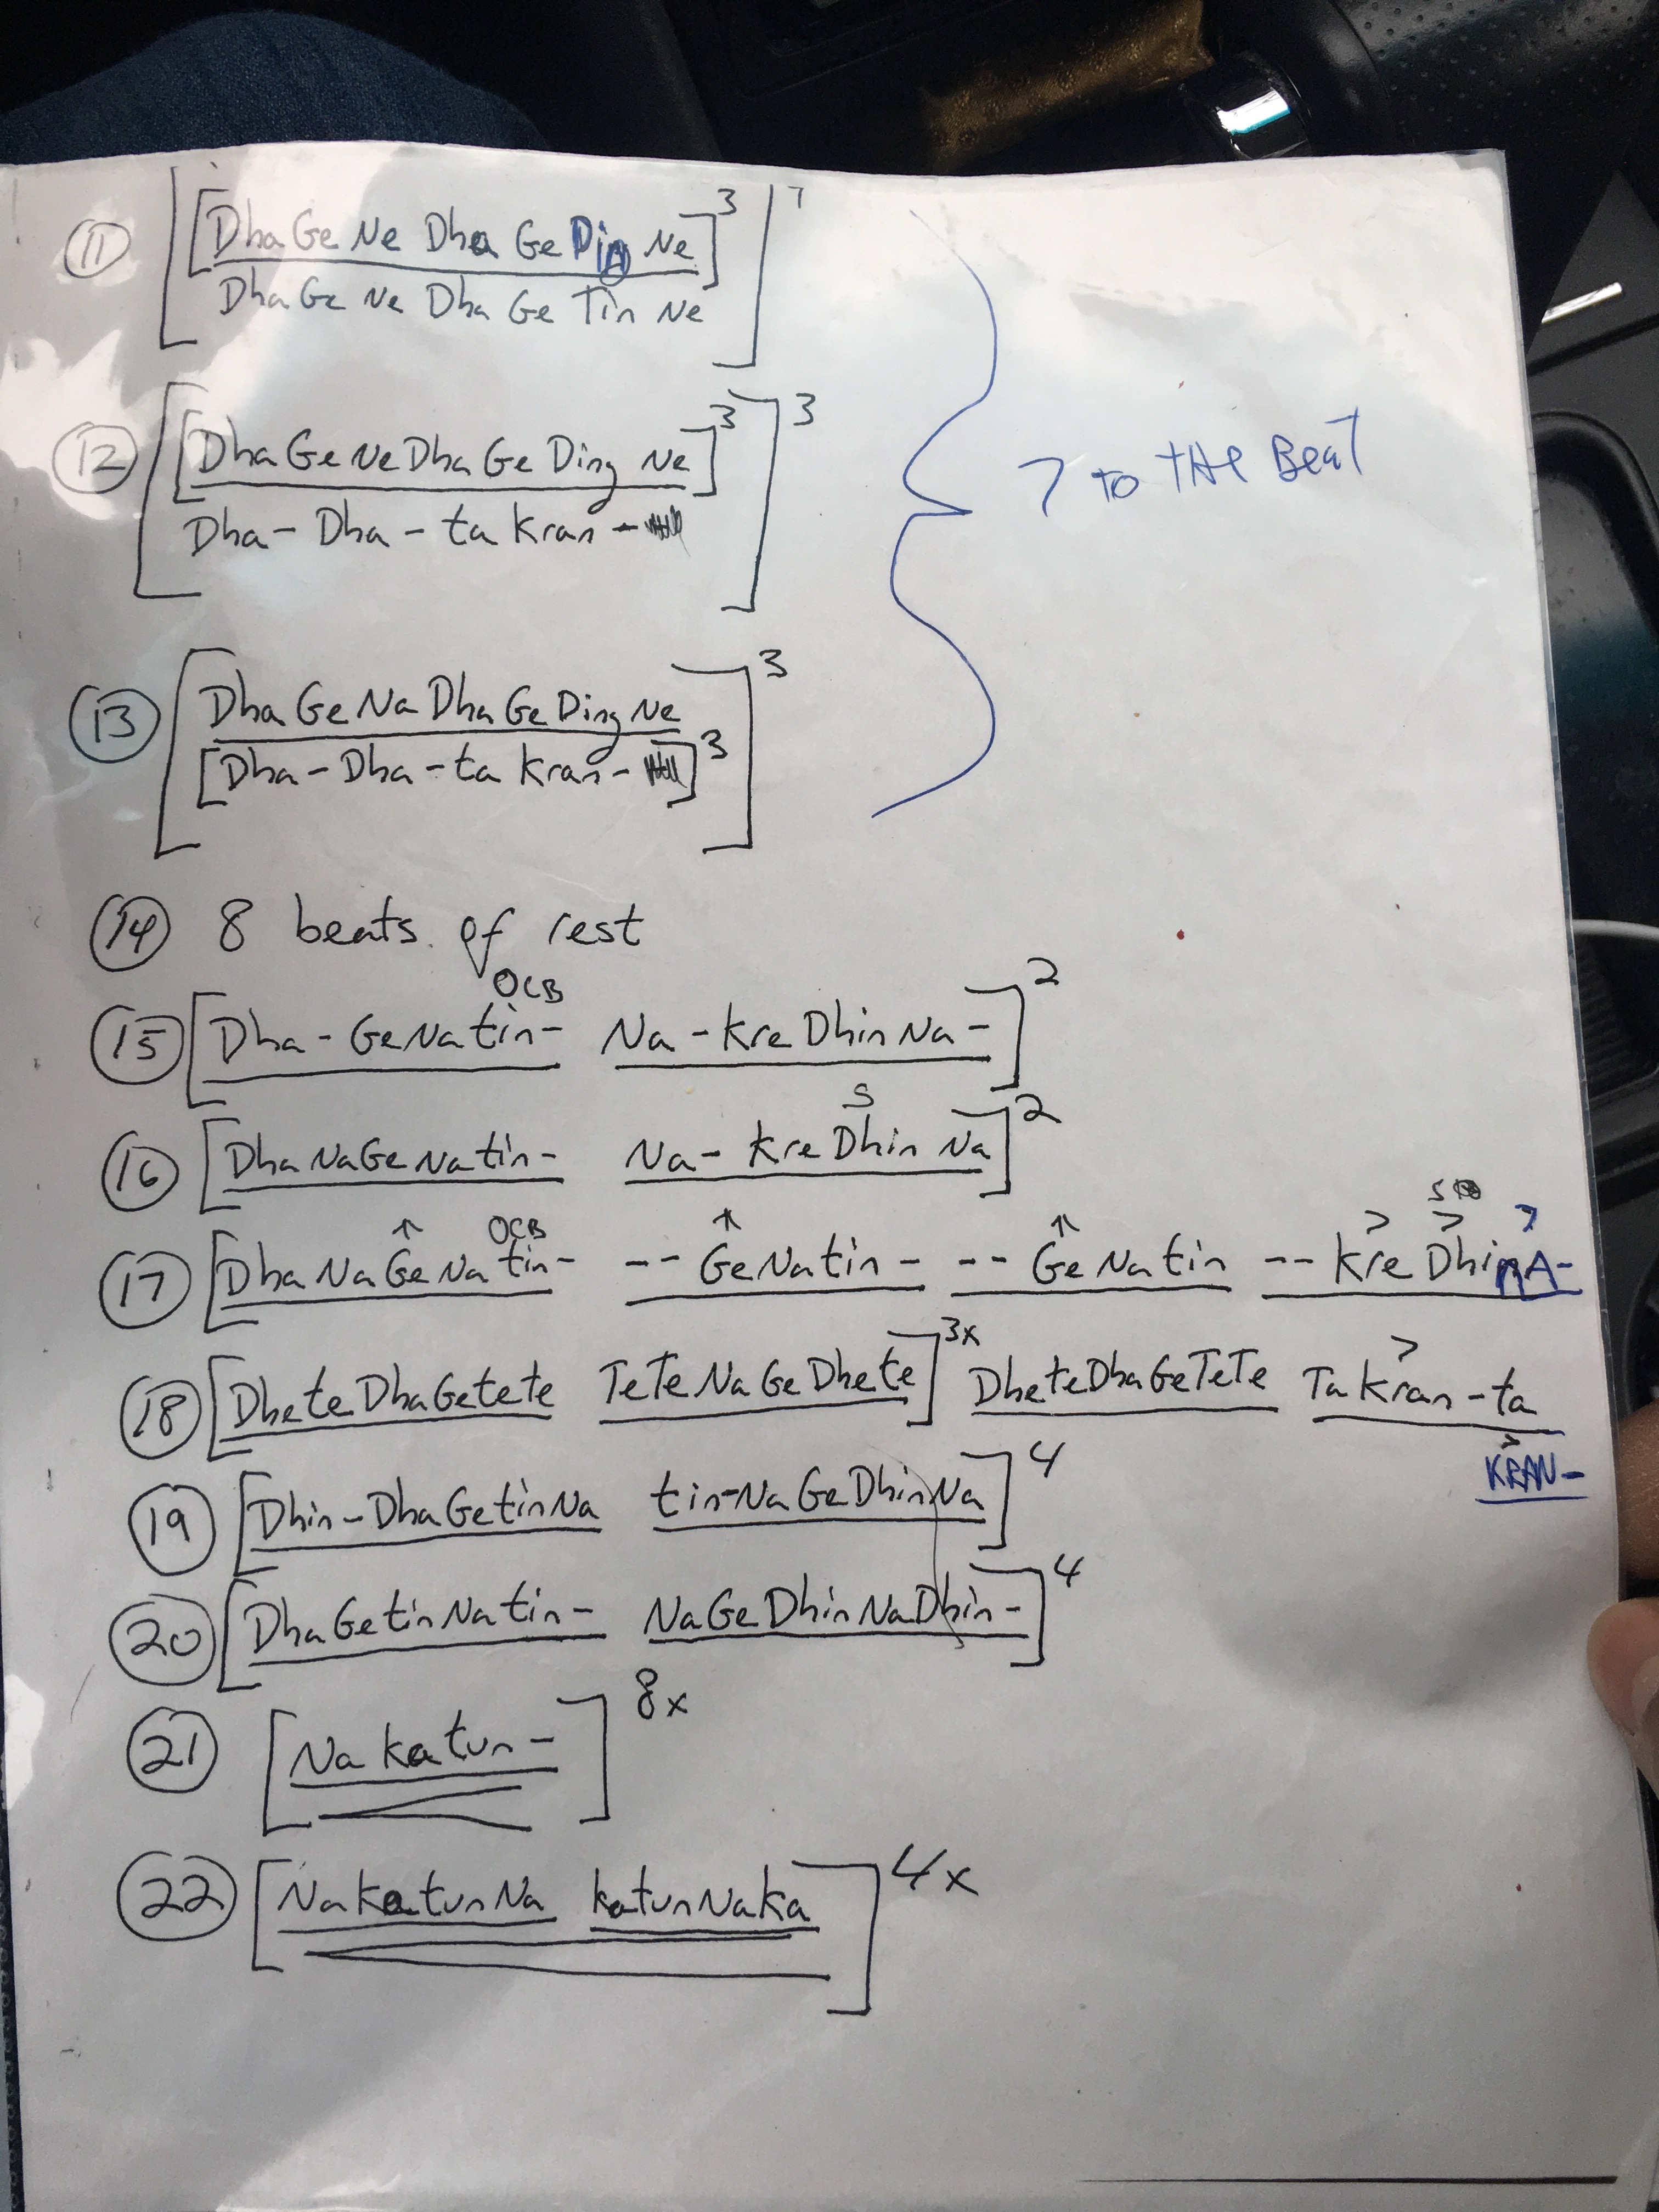 11 [[Dha Ge Ne Dha Ge DiA Ne]3]7
Dha Ge Ne Dha Ge Tin Ne
12 [[Dha Ge Ne Dha Ge Ding Ne]3]3
Dha - Dha - ta Kran -
7 to the Beat
13 [Dha Ge Na Dha Ge Ding Ne]3
[Dha - Dha - ta Kran -]3
14 8 beats of rest
OCB
15 [Dha - Ge Na tin - Na - Kre Dhin Na -]2
S
16 [Dha Na Ge Na tin - Na - Kre Dhin Na]2
↑ OCB ↑ ↑ > > >
17 [Dha Na Ge Na tin - -- Ge Na tin - -- Ge Na tin -- Kre Dhi nA -
>
18 [Dhe te Dha Ge te te Te Te Na Ge Dhe te]3x Dhe te Dha Ge Te Te Ta Kran - ta
>
KRAN -
19 [Dhin - Dha Ge tin Na tin - Na Ge Dhin Na]4
20 [Dha Ge tin Na tin - Na Ge Dhin Na Dhin -]4
21 [Na Ka tun -]8x
22 [Na Ka tun Na Ka tun Na Ka]4x